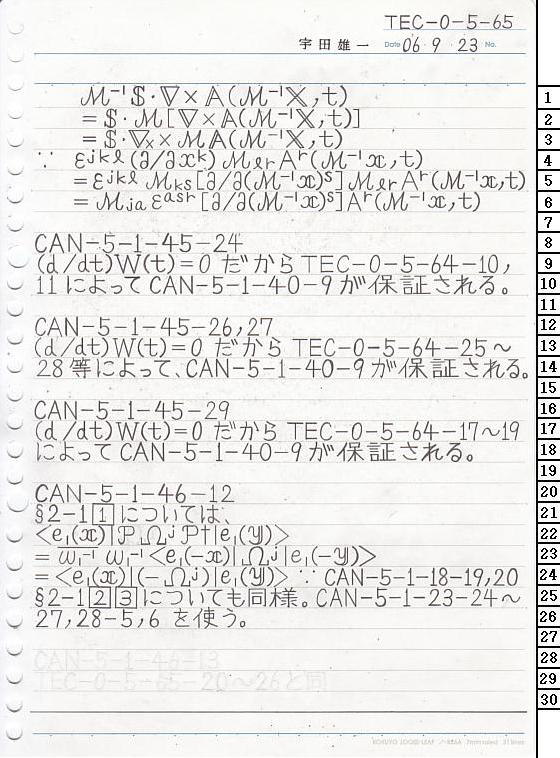 TEC-0-5-65
宇田雄一 Date 06 9 23 No.
ℳ⁻¹$·∇×𝔸(ℳ⁻¹𝕏,t)
=$·ℳ[∇×𝔸(ℳ⁻¹𝕏,t)]
=$·∇ₓ×ℳ𝔸(ℳ⁻¹𝕏,t)
∵ εʲᵏˡ(∂/∂xᵏ)ℳℓrAʳ(ℳ⁻¹x,t)
=εʲᵏˡℳks[∂/∂(ℳ⁻¹x)ˢ]ℳℓrAʳ(ℳ⁻¹x,t)
=ℳja εᵃˢʳ[∂/∂(ℳ⁻¹x)ˢ]Aʳ(ℳ⁻¹x,t)
CAN-5-1-45-24
(d/dt)W(t)=0 だから TEC-0-5-64-10,
11によってCAN-5-1-40-9が保証される。
CAN-5-1-45-26,27
(d/dt)W(t)=0 だから TEC-0-5-64-25〜
28等によって、CAN-5-1-40-9が保証される。
CAN-5-1-45-29
(d/dt)W(t)=0 だから TEC-0-5-64-17〜19
によってCAN-5-1-40-9が保証される。
CAN-5-1-46-12
§2-1[1]については、
<e₁(x)|𝒫₁Ωʲ𝒫†|e₁(y)>
=ω̅₁⁻¹ω₁⁻¹<e₁(-x)|Ωʲ|e₁(-y)>
=<e₁(x)|(-Ωʲ)|e₁(y)> ∵ CAN-5-1-18-19,20
§2-1[2][3]についても同様。CAN-5-1-23-24〜
27,28-5,6 を使う。
CAN-5-1-46-13
TEC-0-5-65-20〜26と同
1
2
3
4
5
6
7
8
9
10
11
12
13
14
15
16
17
18
19
20
21
22
23
24
25
26
27
28
29
30